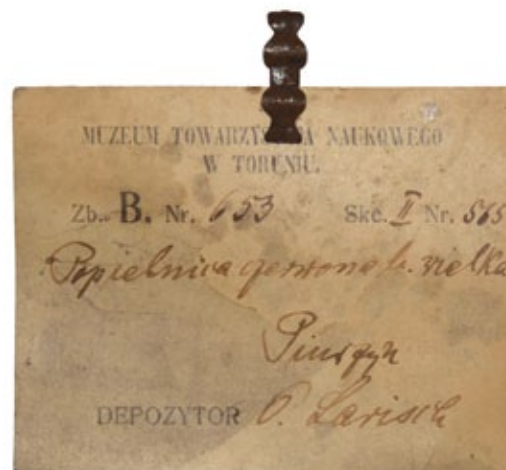 MUZEUM TOWARZYSTWA NAUKOWEGO
W TORUNIU.
Zb. B. Nr. 653 Skc. II Nr. 565
Popielnica czerwona b. wielka
DEPOZYTOR O. Larisch